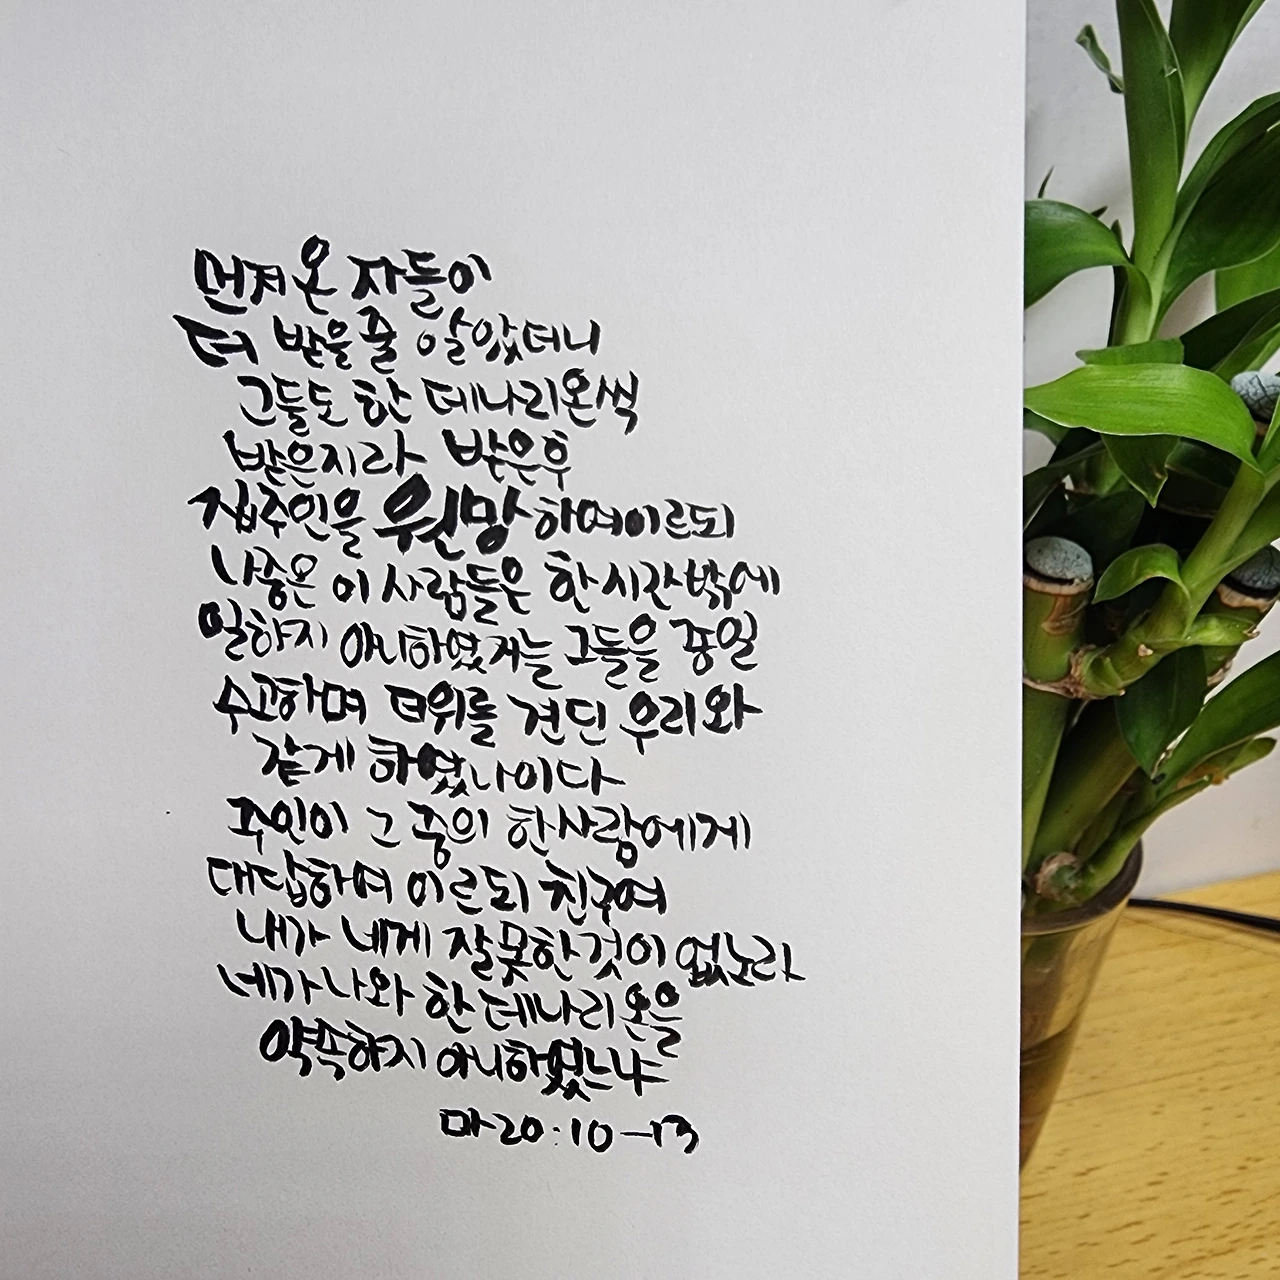 먼저 온 자들이
더 받을 줄 알았더니
그들도 한 데나리온씩
받은지라 받은후
집주인을 원망하여 이르되
나중온 이 사람들은 한시간밖에
일하지 아니하였거늘 그들을 종일
수고하며 더위를 견딘 우리와
같게 하였나이다
주인이 그 중의 한사람에게
대답하여 이르되 친구여
내가 네게 잘못한 것이 없노라
네가 나와 한 데나리온을
약속하지 아니하였느냐
마20:10-13